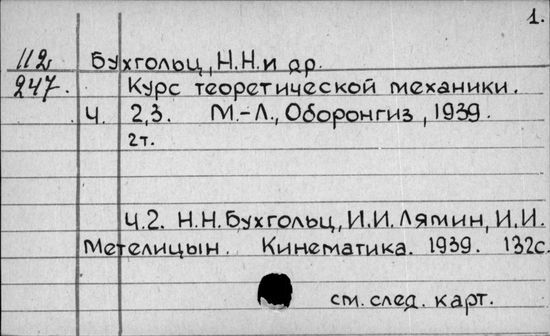 1.
112 Бухгольц, Н.Н. и др.
247. Курс теоретической механики.
Ч. 2,3. М.-Л., Оборонгиз, 1939.
2т.
Ч.2. Н.Н. Бухгольц, И.И. Лямин, И.И.
Метелицын. Кинематика. 1939. 132с.
см. след. карт.